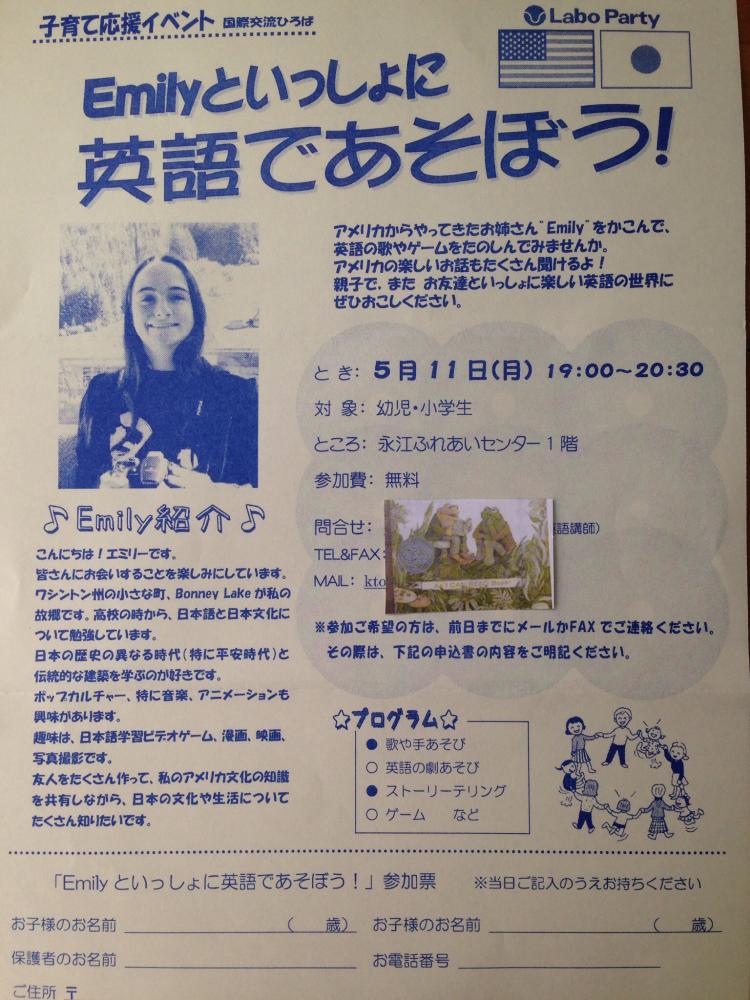 子育て応援イベント 国際交流ひろば
Labo Party
Emilyといっしょに
英語であそぼう!
アメリカからやってきたお姉さん"Emily"をかこんで、
英語の歌やゲームをたのしんでみませんか。
アメリカの楽しいお話もたくさん聞けるよ!
親子で、また お友達といっしょに楽しい英語の世界に
ぜひおこしください。
とき: 5月11日(月) 19:00~20:30
対 象: 幼児・小学生
ところ: 永江ふれあいセンター1階
参加費: 無料
問合せ: 語講師)
TEL&FAX:
MAIL: kto
I CAN READ Book
※参加ご希望の方は、前日までにメールかFAXでご連絡ください。
その際は、下記の申込書の内容をご明記ください。
♪Emily紹介♪
こんにちは!エミリーです。
皆さんにお会いすることを楽しみにしています。
ワシントン州の小さな町、Bonney Lakeが私の
故郷です。高校の時から、日本語と日本文化に
ついて勉強しています。
日本の歴史の異なる時代(特に平安時代)と
伝統的な建築を学ぶのが好きです。
ポップカルチャー、特に音楽、アニメーションも
興味があります。
趣味は、日本語学習ビデオゲーム、漫画、映画、
写真撮影です。
友人をたくさん作って、私のアメリカ文化の知識
を共有しながら、日本の文化や生活について
たくさん知りたいです。
☆プログラム☆
● 歌や手あそび
○ 英語の劇あそび
● ストーリーテリング
○ ゲーム など
「Emilyといっしょに英語であそぼう!」参加票 ※当日ご記入のうえお持ちください
お子様のお名前 ( 歳) お子様のお名前 ( 歳)
保護者のお名前 お電話番号
ご住所 〒